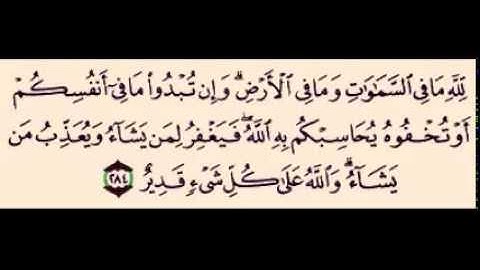 لِلَّهِ مَا فِي السَّمَاوَاتِ وَمَا فِي الْأَرْضِ ۗ وَإِن تُبْدُوا مَا فِي أَنفُسِكُمْ
أَوْ تُخْفُوهُ يُحَاسِبْكُم بِهِ اللَّهُ ۖ فَيَغْفِرُ لِمَن يَشَاءُ وَيُعَذِّبُ مَن
يَشَاءُ ۗ وَاللَّهُ عَلَىٰ كُلِّ شَيْءٍ قَدِيرٌ ٢٨٤